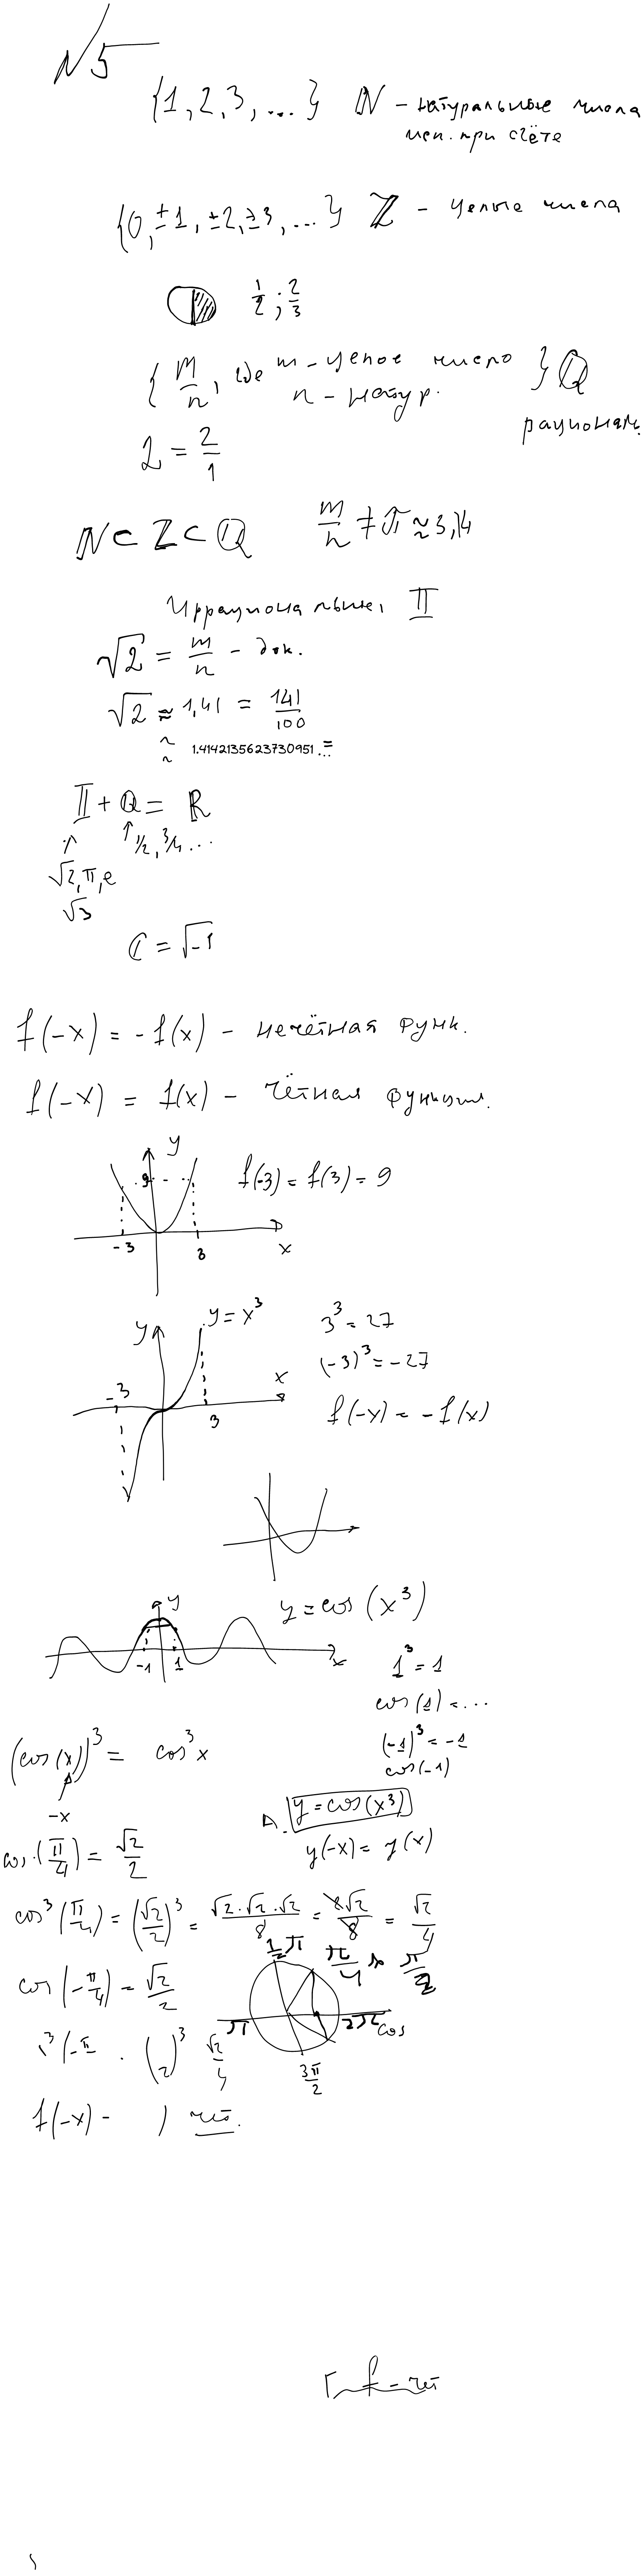 №5
{1, 2, 3, ...} ℕ - натуральные числа
исп. при счёте
{0, ±1, ±2, ±3, ...} ℤ - целые числа
1/2 ; 2/3
{ m/n, где m - целое число
n - натур. } ℚ
рациональн.
2 = 2/1
ℕ ⊂ ℤ ⊂ ℚ m/n ≠ π ≈ 3,14
Иррациональные, 𝕀
√2 = m/n - док.
√2 ≈ 1,41 = 141/100
≈ 1.4142135623730951... =
𝕀 + ℚ = ℝ
↑ ↑ 1/2, 3/4 ...
√2, π, e
√3
ℂ = √-1
f(-x) = -f(x) - нечётная функ.
f(-x) = f(x) - чётная функция.
y
9 f(-3) = f(3) = 9
-3 3 x
y y = x³ 3³ = 27
(-3)³ = -27
-3 3 x
f(-x) = -f(x)
y y = cos(x³)
-1 1 x
1³ = 1
cos(1) = ...
(-1)³ = -1
cos(-1)
(cos(x))³ = cos³x
-x
y = cos(x³)
y(-x) = y(x)
cos(π/4) = √2/2
cos³(π/4) = (√2/2)³ = √2·√2·√2/8 = 2√2/8 = √2/4
1/2 π π/4 π/2
cos(-π/4) = √2/2
π 2π cos
³(-π ( 2)³ √2
3π/2
f(-x) - ) чёт.
f - чёт